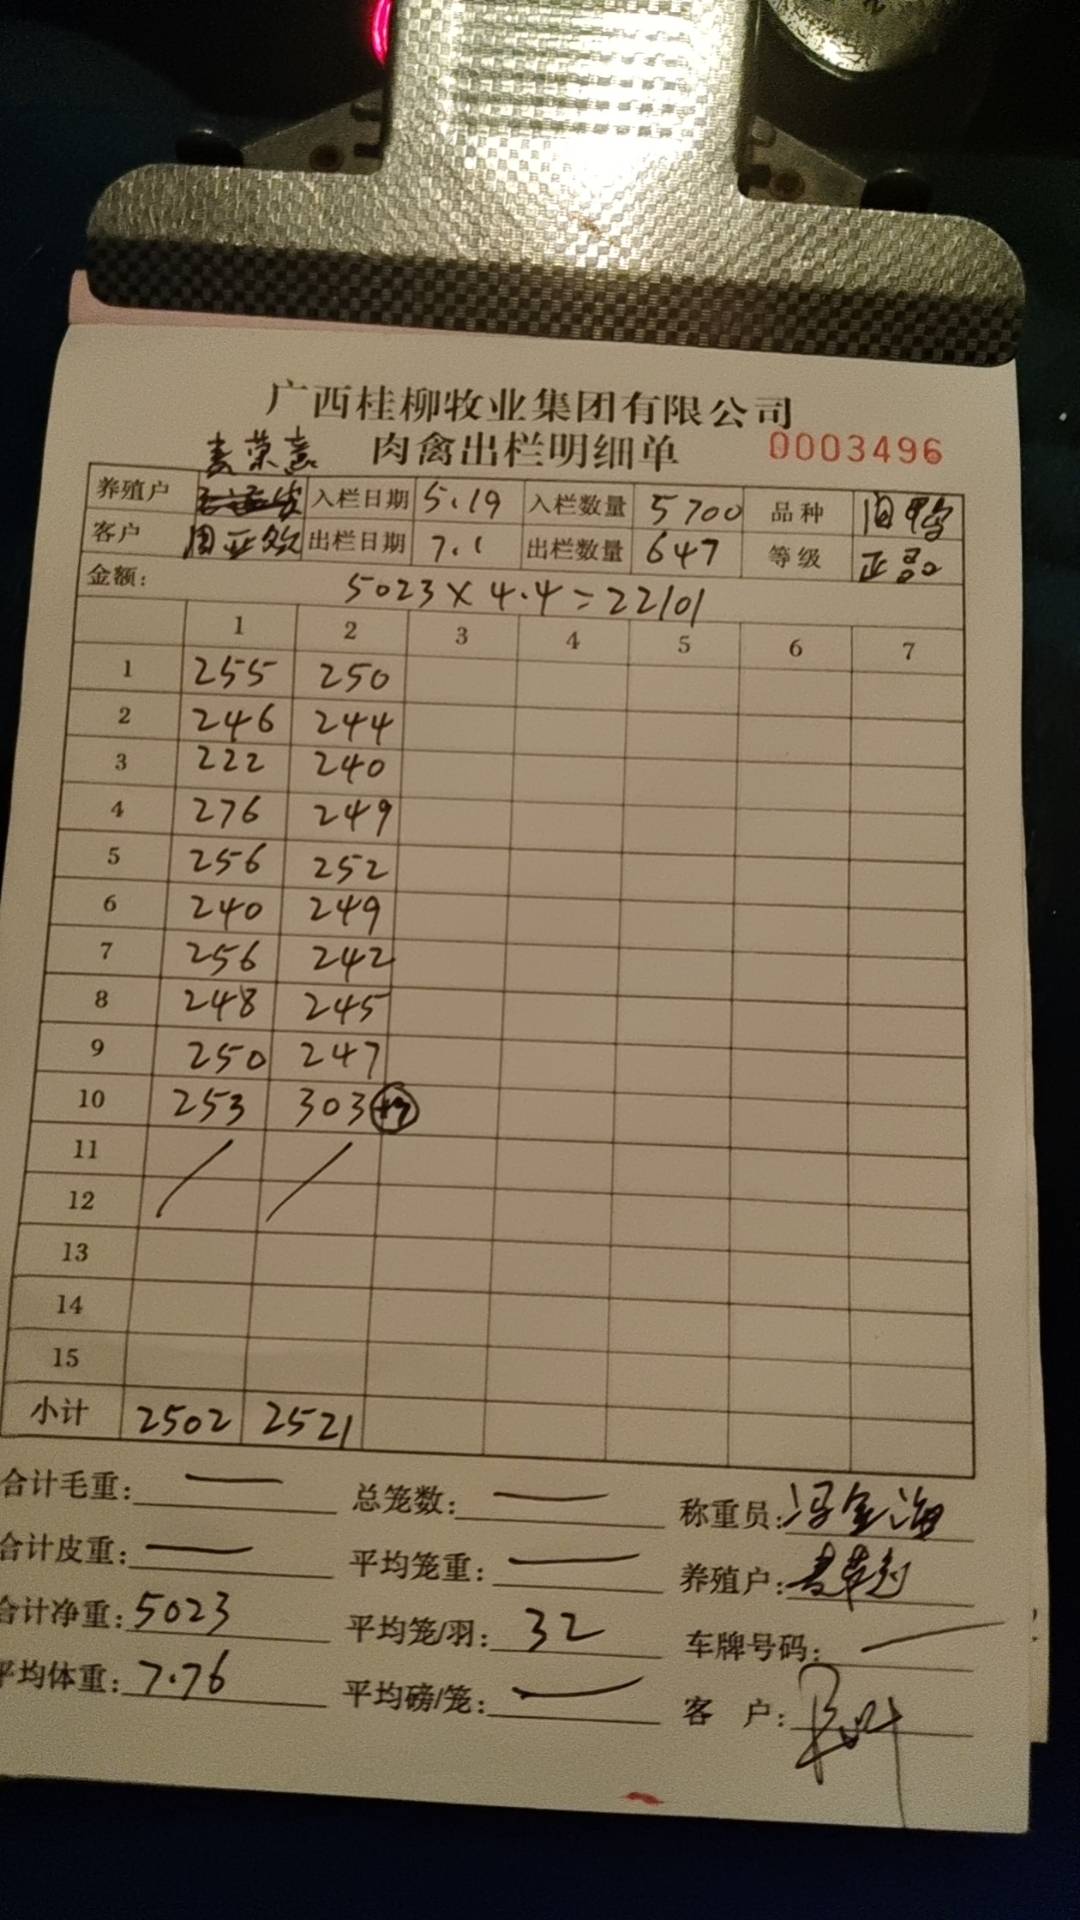 广西桂柳牧业集团有限公司
肉禽出栏明细单 0003496
养殖户 麦荣 入栏日期 5.19 入栏数量 5700 品种 鸭
客户 周亚欢 出栏日期 7.1 出栏数量 647 等级 正品
金额: 5023×4.4=22101
1 2 3 4 5 6 7
1 255 250
2 246 244
3 222 240
4 276 249
5 256 252
6 240 249
7 256 242
8 248 245
9 250 247
10 253 303
11
12
13
14
15
小计 2502 2521
合计毛重: — 总笼数: — 称重员: 冯金海
合计皮重: — 平均笼重: — 养殖户:
合计净重: 5023 平均笼/羽: 32 车牌号码: —
平均体重: 7.76 平均磅/笼: — 客 户: